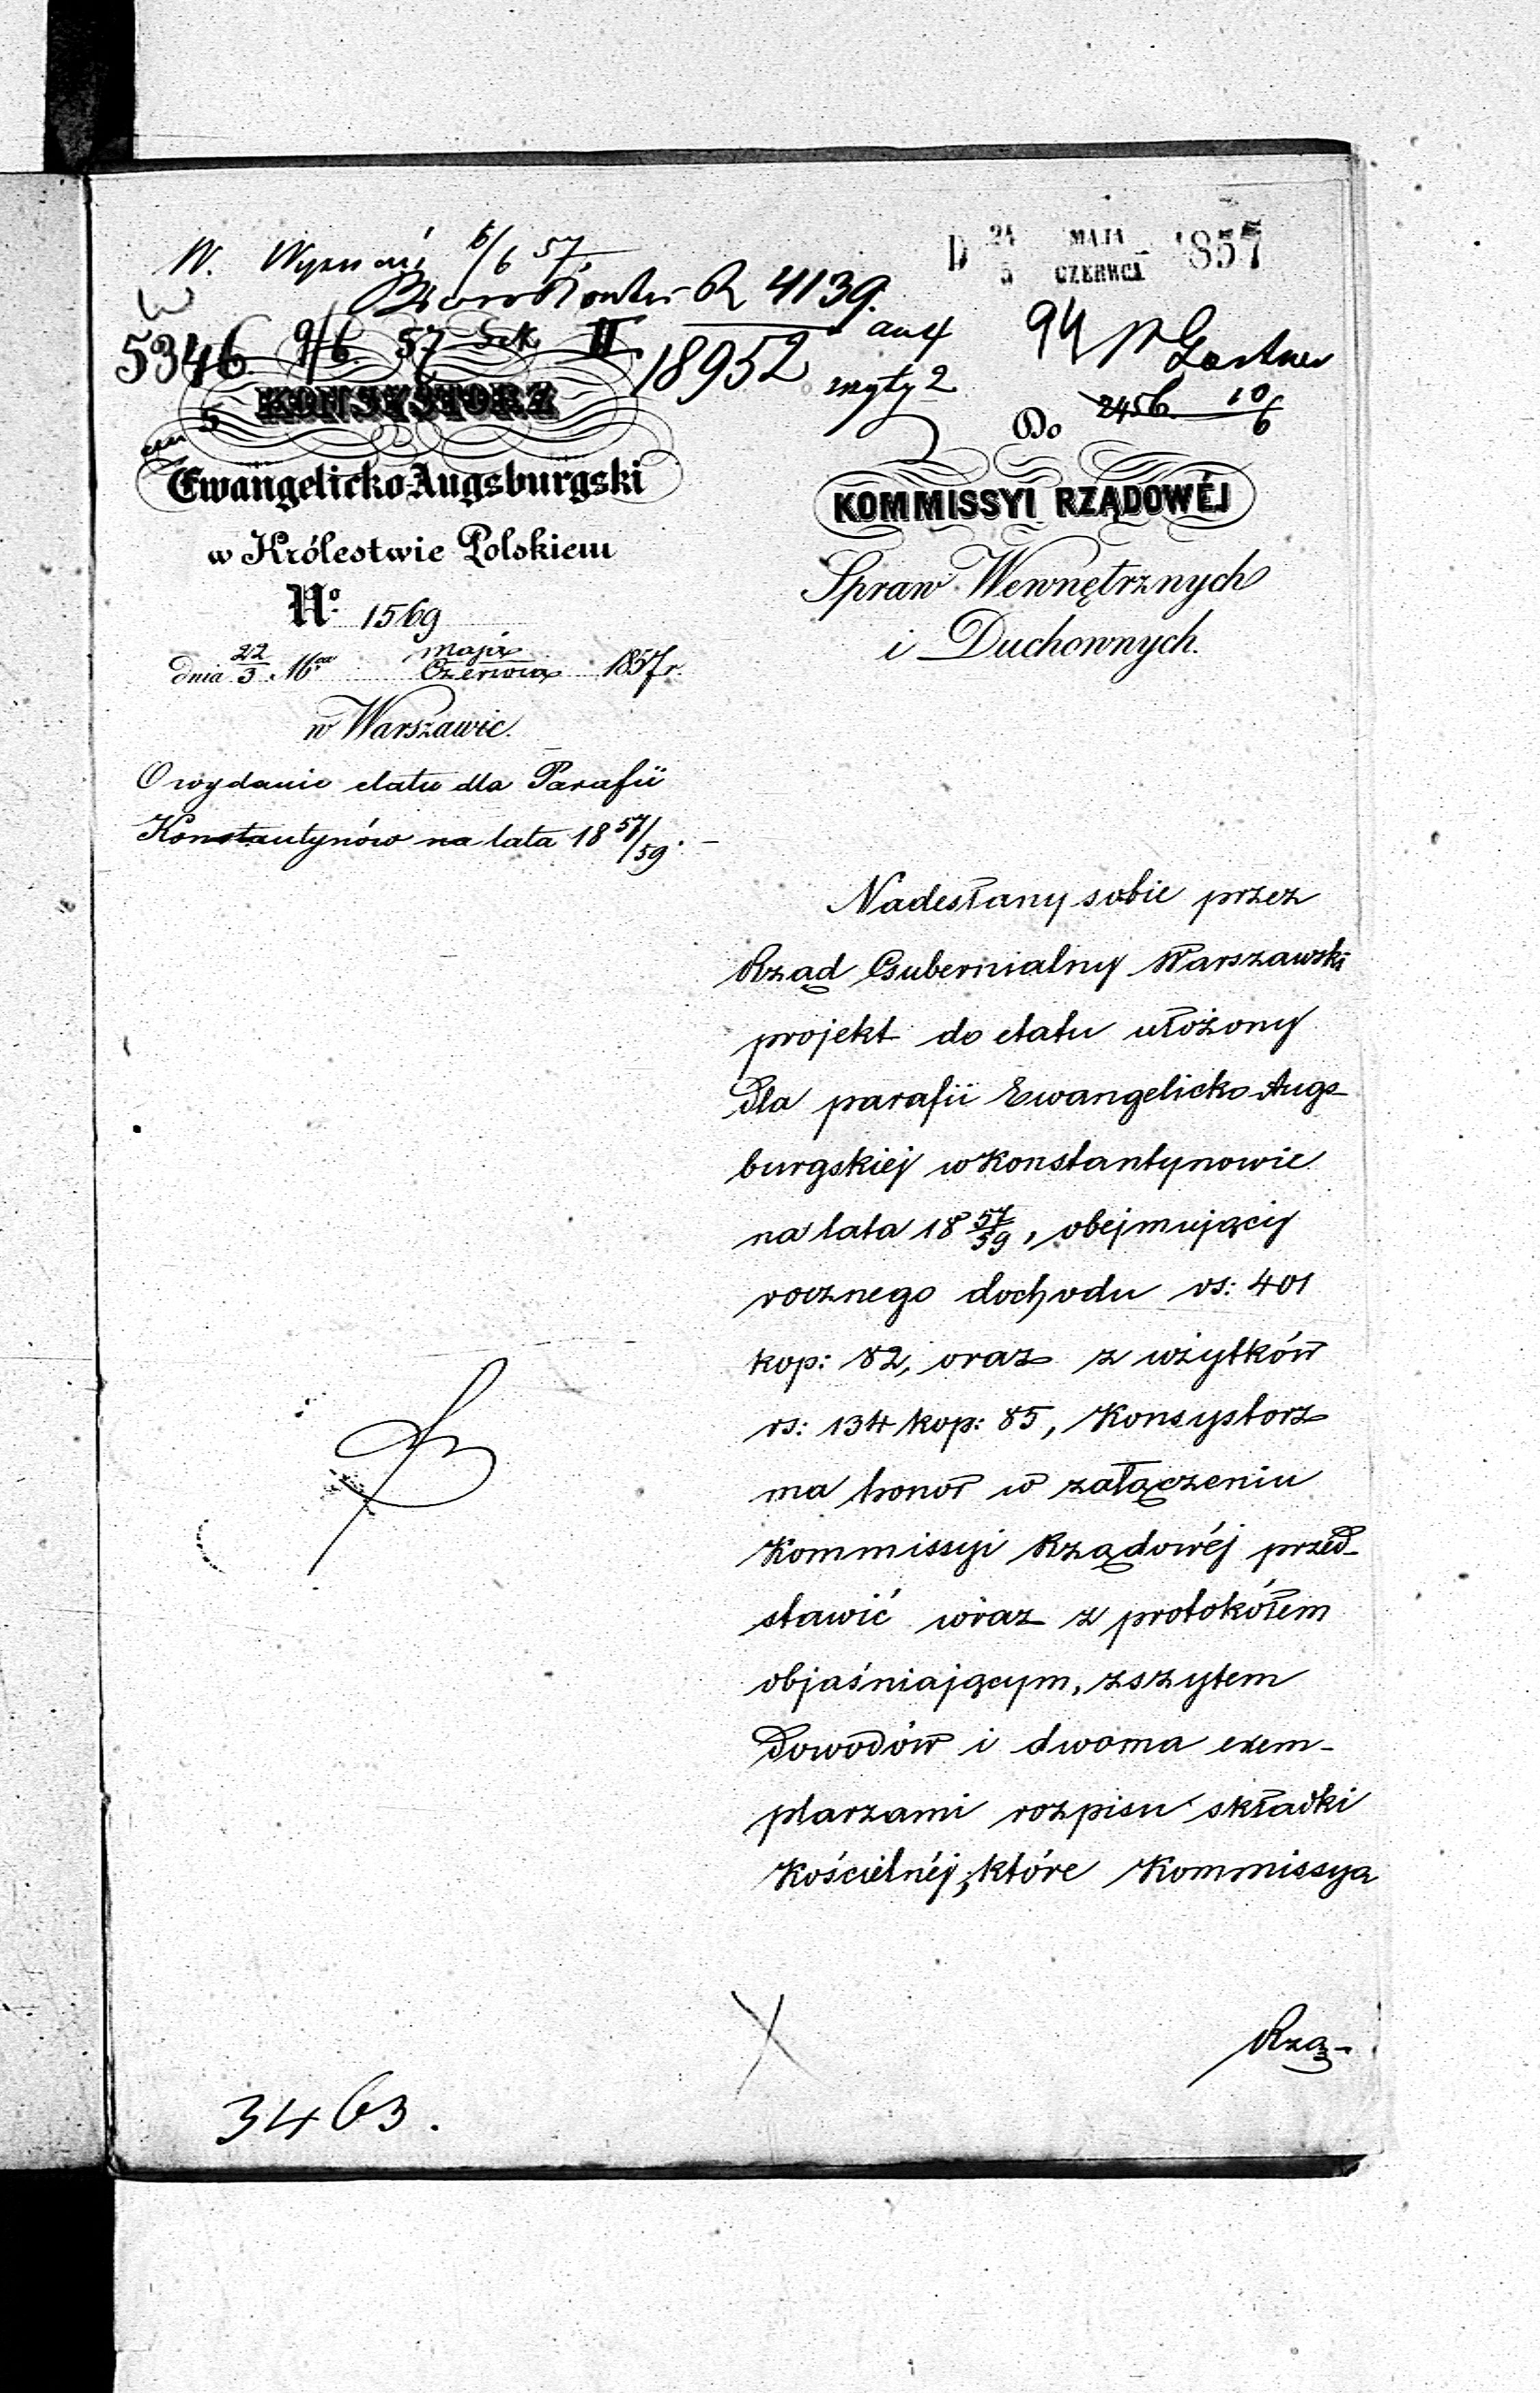 W. 6/6 57
D 24/5 MAJA/CZERWCA 1857
R 4139.
5346 9/6. 57 Sek II
18952
94
2456. 10/6
KONSYSTORZ
Ewangelicko-Augsburgski
w Królestwie Polskiem
No. 1569
dnia 22/3 Maja/Czerwca 1857 r.
w Warszawie.
O wydanie etatu dla Parafii
Konstantynów na lata 18 57/59.
Do
KOMMISSYI RZĄDOWÉJ
Spraw Wewnętrznych
i Duchownych.
Nadesłany sobie przez
Rząd Gubernialny Warszawski
projekt do etatu ułożony
dla parafii Ewangelicko Augs-
burgskiej w Konstantynowie
na lata 18 57/59, obejmujący
rocznego dochodu rs: 401
kop: 82, oraz z użytków
rs: 134 kop: 85, Konsystorz
ma honor w załączeniu
Kommissyi Rządowéj przed-
stawić wraz z protokółem
objaśniającym, zszytem
dowodów i dwoma exem-
plarzami rozpisu składki
Kościelnéj, które Kommissya
Rzą-
3463.